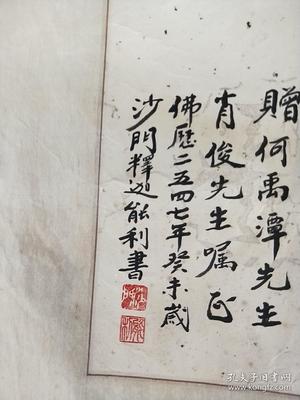 贈何禹潭先生
肖俊先生嘱正
佛歷二五四七年癸未歲
沙門釋迦能利書
孔夫子旧书网